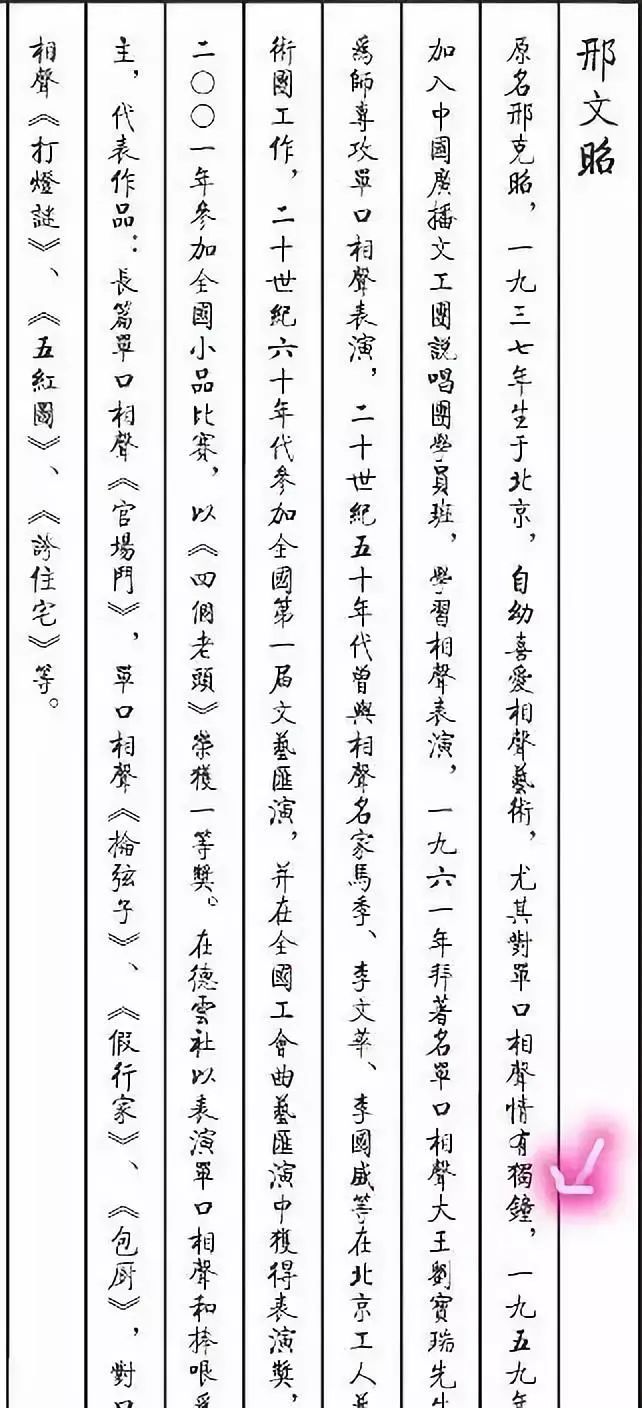 邢文昭
原名邢克昭，一九三七年生于北京，自幼喜愛相聲藝術，尤其對單口相聲情有獨鐘，一九五九年
加入中國廣播文工團説唱團學員班，學習相聲表演，一九六一年拜著名單口相聲大王劉寶瑞先生
爲師專攻單口相聲表演，二十世紀五十年代曾與相聲名家馬季、李文華、李國盛等在北京工人
術團工作，二十世紀六十年代參加全國第一届文藝匯演，并在全國工會曲藝匯演中獲得表演獎，
二〇〇一年參加全國小品比賽，以《四個老頭》榮獲一等獎。在德雲社以表演單口相聲和捧哏爲
主，代表作品：長篇單口相聲《官場鬥》，單口相聲《掄弦子》、《假行家》、《包厨》，對口
相聲《打燈謎》、《五紅圖》、《誇住宅》等。